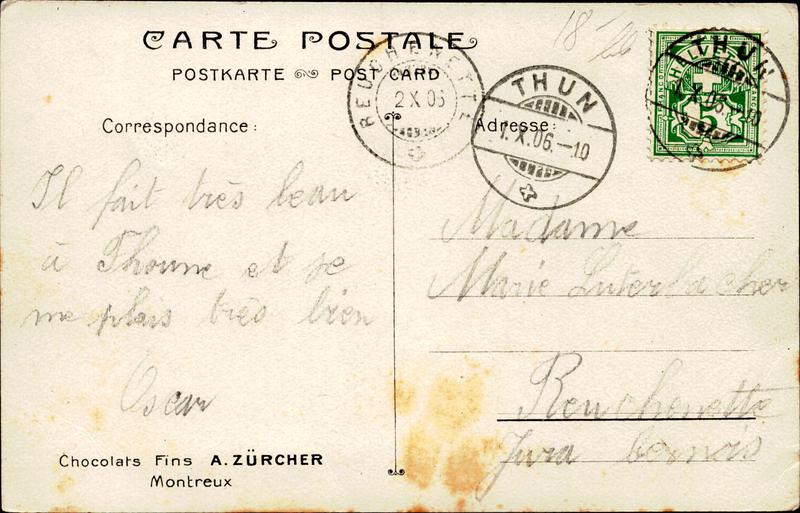 CARTE POSTALE
POSTKARTE POST CARD
Correspondance:
Adresse:
REUCHENETTE
2 X 06
THUN
1.X.06.-10
THUN
HELVETIA
X.06.-10
5
Il fait très beau
à Thoune et je
me plais très bien
Oscar
Madame
Marie Luterbacher
Reuchenette
Jura bernois
Chocolats Fins A. ZÜRCHER
Montreux